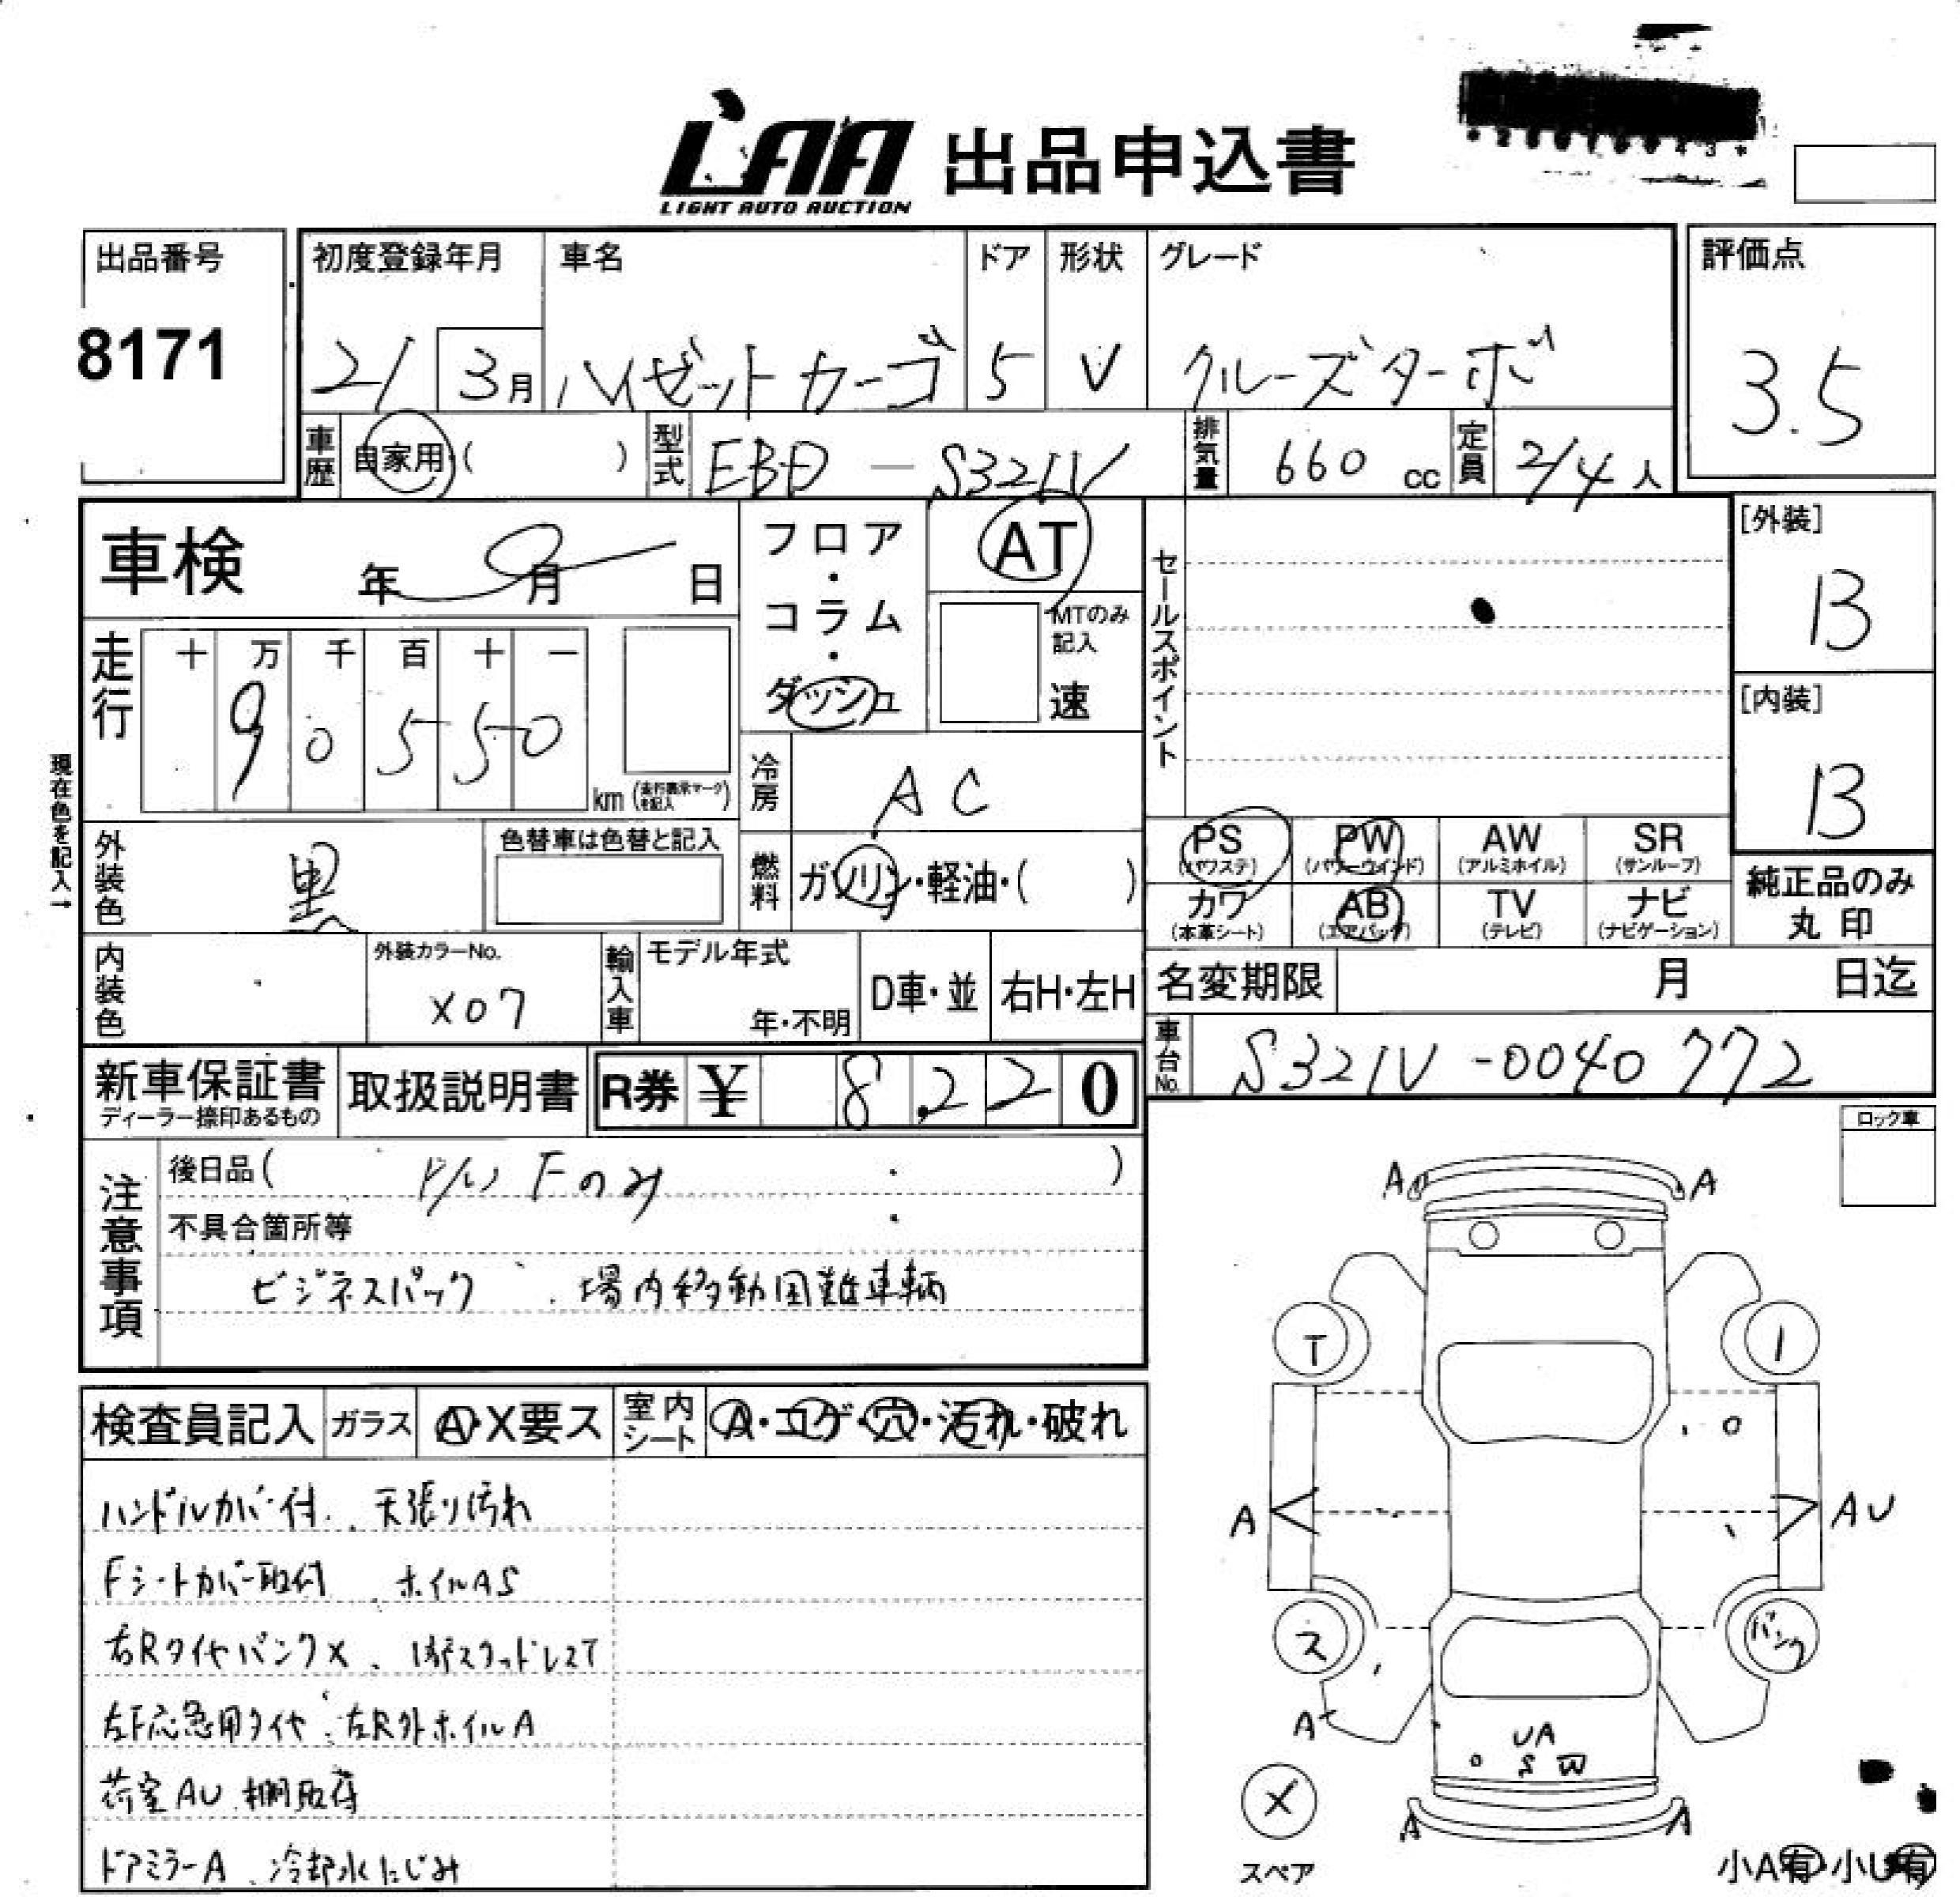 LAA 出品申込書
LIGHT AUTO AUCTION
出品番号 初度登録年月 車名 ドア 形状 グレード 評価点
8171 21 3月 ハイゼットカーゴ 5 V クルーズターボ 3.5
車歴 自家用・( ) 型式 EBD-S321V 排気量 660 cc 定員 2/4人
車検 年 月 日 フロア・コラム・ダッシュ AT セールスポイント [外装]
B
MTのみ記入
速
走行 十 万 千 百 十 一
9 0 5 5 0 km (走行表示マークを記入)
[内装]
B
現在色を記入→
冷房 AC
外装色 黒 色替車は色替と記入 燃料 ガソリン・軽油・( )
PS (パワステ) PW (パワーウインド) AW (アルミホイル) SR (サンルーフ)
カワ (本革シート) AB (エアバッグ) TV (テレビ) ナビ (ナビゲーション)
純正品のみ
丸印
内装色 外装カラーNo. X07 輸入車 モデル年式 年・不明 D車・並 右H・左H
名変期限 月 日迄
車台No. S321V-0040772
新車保証書 ディーラー捺印あるもの 取扱説明書 R券 ¥ 8,220
ロック車
注意事項
後日品( P/W Fのみ )
不具合箇所等
ビジネスパック、場内移動困難車輌
検査員記入 ガラス A・X要ス 室内シート A・コゲ・穴・汚れ・破れ
ハンドルカバー付、天張り汚れ
Fシートカバー取付、ホイルAS
右RタイヤパンクX、1部スタッドレスT
左F応急用タイヤ、左R外ホイルA
荷室AU 棚取存
ドアミラーA、冷却水にじみ
A A
T
A AU
ス パンク
A
UA
S W
X
A A
スペア
小A有・小U有